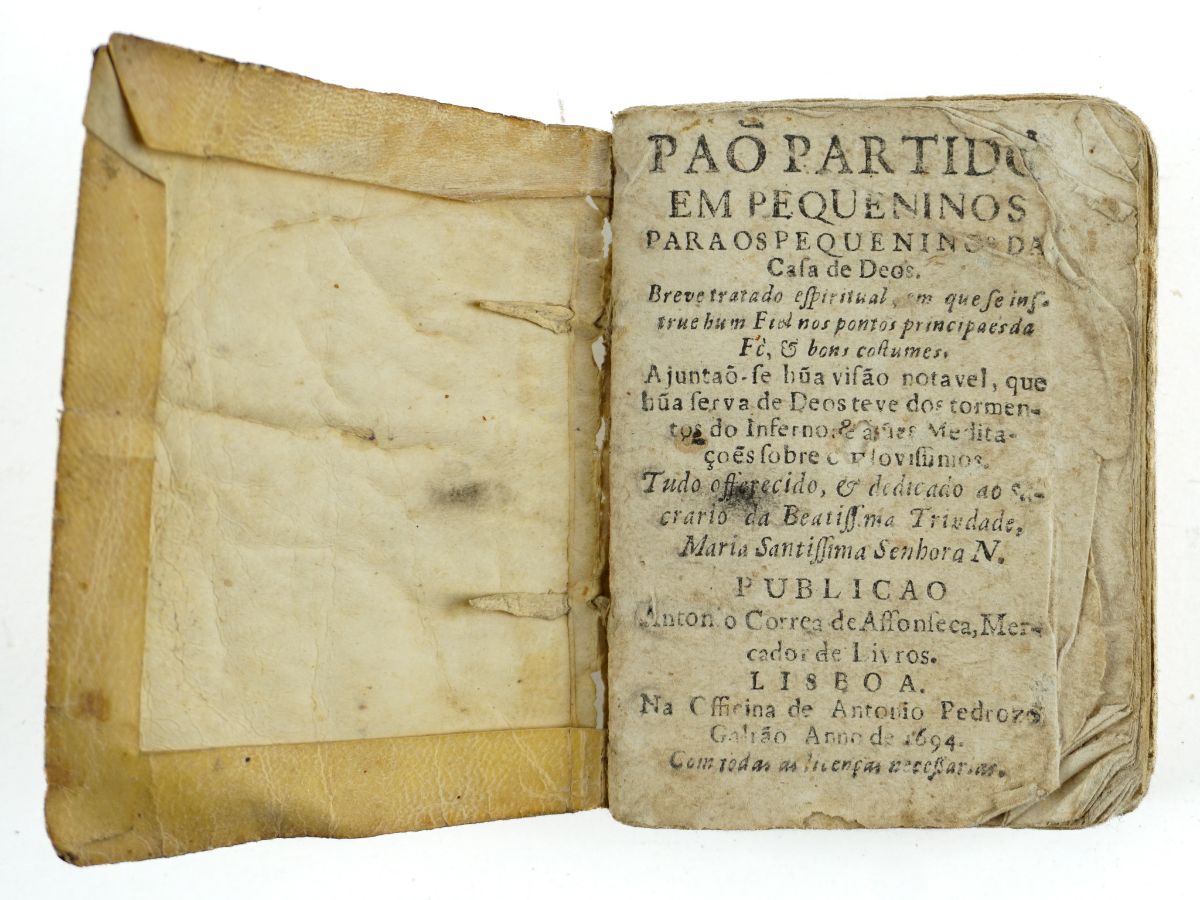 PAÕ PARTIDO
EM PEQUENINOS
PARA OS PEQUENINOS DA
Caſa de Deos.
Breve tratado eſpiritual, em que ſe inſ-
true hum Fiel nos pontos principaes da
Fè, & bons coſtumes.
Ajuntaõ-ſe hũa viſão notavel, que
hũa ſerva de Deos teve dos tormen-
tos do Inferno, & Medita-
çoẽs ſobre Noviſſimos.
Tudo offerecido, & dedicado ao Sa-
crario da Beatiſſima Trindade,
Maria Santiſſima Senhora N.
PUBLICAO
Antonio Correa de Affonſeca, Mer-
cador de Livros.
LISBOA.
Na Officina de Antonio Pedrozo
Galrão Anno de 1694.
Com todas as licenças neceſſarias.